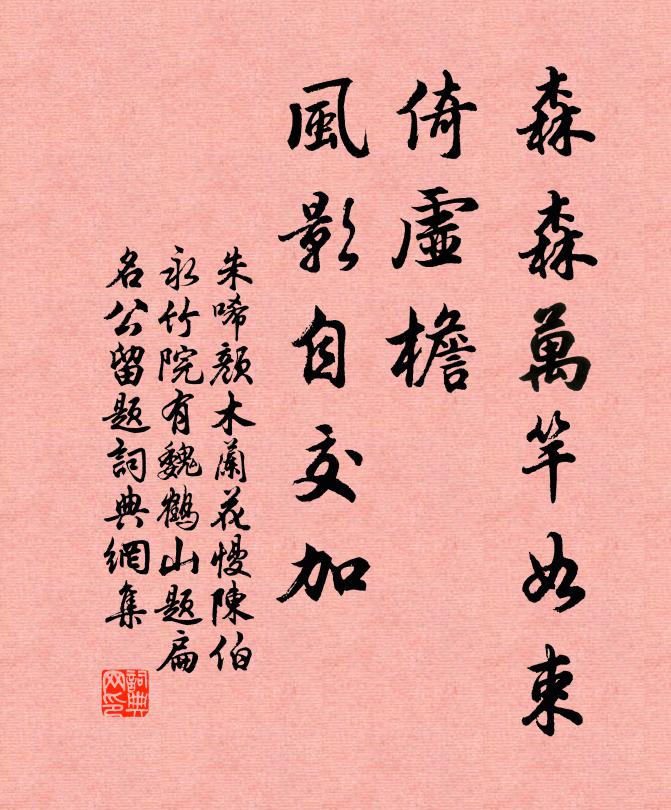 森森萬竿如束
倚虛檐
風影自交加
朱晞顏木蘭花慢陳伯
永竹院有魏鶴山題扁
名公留題詞典網集
詞典网印